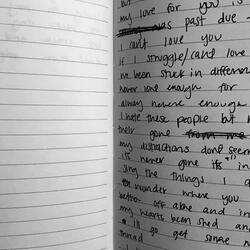 but
my love for you is
was past due
I can't love you
if I struggle/can't love
I'm been stuck in differen
never love enough for
always never enough
I hate these people but
their gone from me
my distractions dont seem
its never gone its in
sing the things I
wonder where you
better off alone and i
my hearts been shed an
i'll go get some
thread